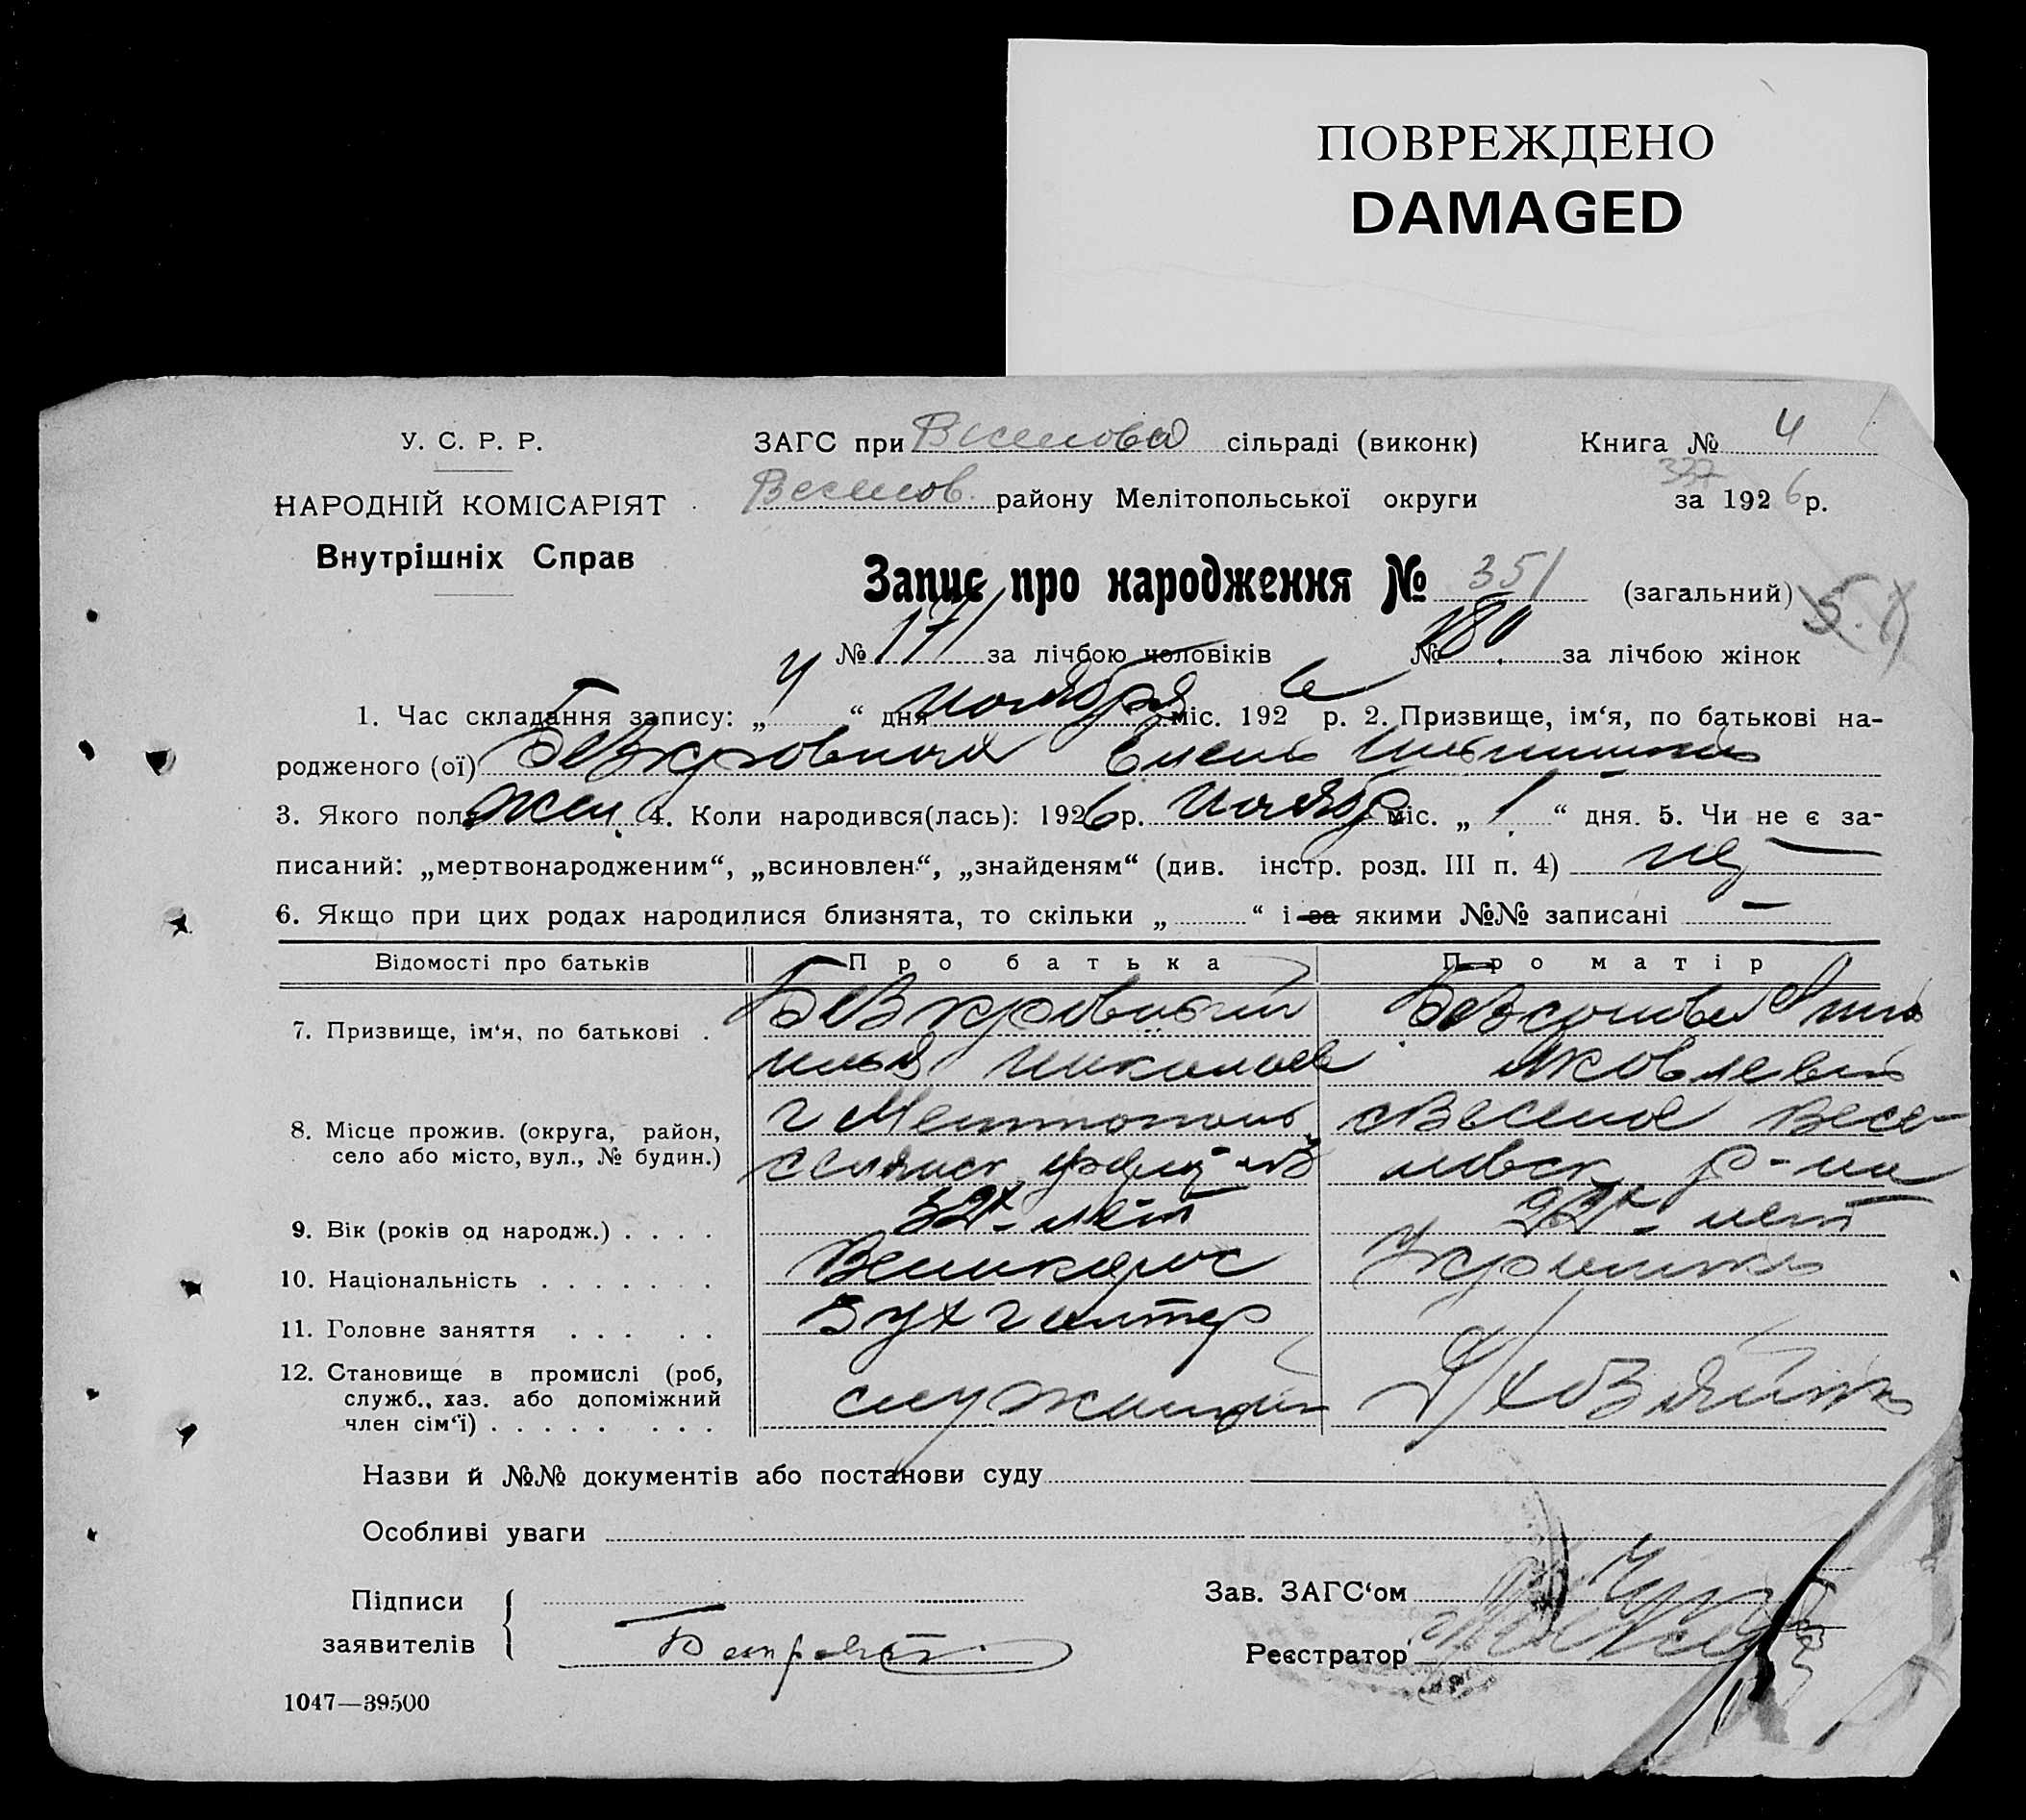 ПОВРЕЖДЕНО
DAMAGED
У. С. Р. Р.
НАРОДНІЙ КОМІСАРІЯТ
Внутрішніх Справ
ЗАГС при сільраді (виконк)
Веселов. району Мелітопольської округи
Книга № 4
337
за 1926 р.
Запис про народження № 351 (загальний)
№ 171 за лічбою чоловіків № 180 за лічбою жінок
1. Час складання запису: „ 4 “ дня ноября міс. 1926 р. 2. Призвище, ім‘я, по батькові на-
родженого (ої) Безкровная Елена
3. Якого пола жен. 4. Коли народився(лась): 1926 р. ноябр міс. „ 1 “ дня. 5. Чи не є за-
писаний: „мертвонародженим“, „всиновлен“, „знайденям“ (див. інстр. розд. III п. 4) нет
6. Якщо при цих родах народилися близнята, то скільки „ “ і за якими №№ записані —
Відомості про батьків Про батька Про матір
7. Призвище, ім‘я, по батькові . Безкровный Безсонова Анна
Илья Николаев Яковлевна
8. Місце прожив. (округа, район, г Мелитополь с Веселое Весе-
село або місто, вул., № будин.) ловск р-на
9. Вік (років од народж.) . . . . 32 лет 22 лет
10. Національність . . . . . . . Великорос Украинка
11. Головне заняття . . . . . Бухгалтер
12. Становище в промислі (роб,
служб., хаз. або допоміжний служащий Д/хозяйка
член сім‘ї) . . . . . . . .
Назви й №№ документів або постанови суду
Особливі уваги
Підписи
заявителів
Зав. ЗАГС‘ом
Реєстратор
1047—39500